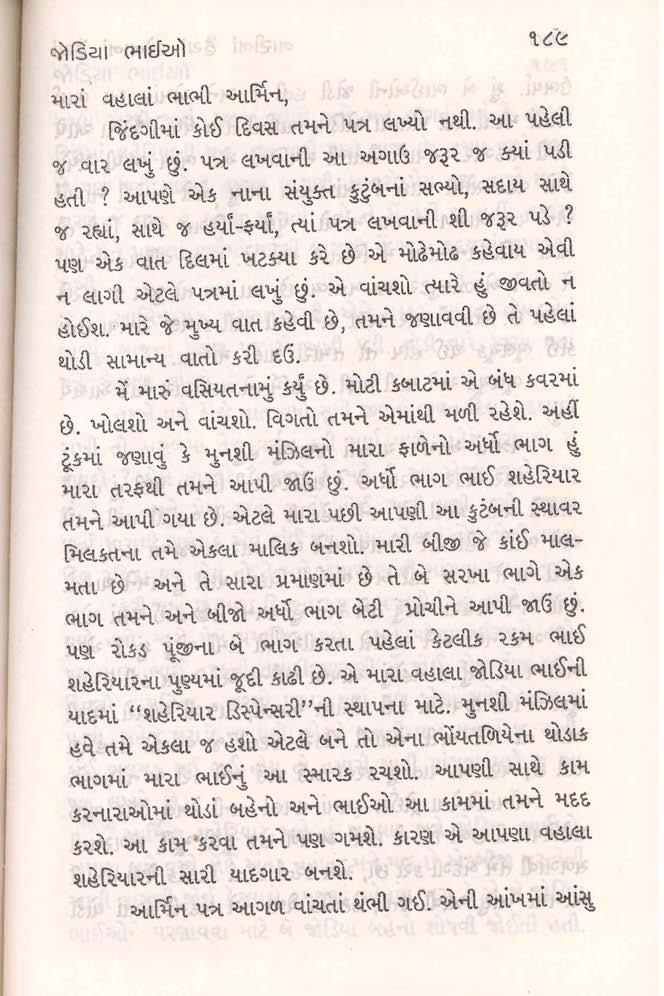 જોડિયાં ભાઈઓ ૧૮૯
મારાં વહાલાં ભાભી આર્મિન,
જિંદગીમાં કોઈ દિવસ તમને પત્ર લખ્યો નથી. આ પહેલી
જ વાર લખું છું. પત્ર લખવાની આ અગાઉ જરૂર જ ક્યાં પડી
હતી ? આપણે એક નાના સંયુક્ત કુટુંબનાં સભ્યો, સદાય સાથે
જ રહ્યાં, સાથે જ હર્યાં-ફર્યાં, ત્યાં પત્ર લખવાની શી જરૂર પડે ?
પણ એક વાત દિલમાં ખટક્યા કરે છે એ મોઢેમોઢ કહેવાય એવી
ન લાગી એટલે પત્રમાં લખું છું. એ વાંચશો ત્યારે હું જીવતો ન
હોઈશ. મારે જે મુખ્ય વાત કહેવી છે, તમને જણાવવી છે તે પહેલાં
થોડી સામાન્ય વાતો કરી દઉં.
મેં મારું વસિયતનામું કર્યું છે. મોટી કબાટમાં એ બંધ કવરમાં
છે. ખોલશો અને વાંચશો. વિગતો તમને એમાંથી મળી રહેશે. અહીં
ટૂંકમાં જણાવું કે મુનશી મંઝિલનો મારા ફાળેનો અર્ધો ભાગ હું
મારા તરફથી તમને આપી જાઉં છું. અર્ધો ભાગ ભાઈ શહેરિયાર
તમને આપી ગયા છે. એટલે મારા પછી આપણી આ કુટંબની સ્થાવર
મિલકતના તમે એકલા માલિક બનશો. મારી બીજી જે કાંઈ માલ-
મતા છે– અને તે સારા પ્રમાણમાં છે તે બે સરખા ભાગે એક
ભાગ તમને અને બીજો અર્ધો ભાગ બેટી પ્રોચીને આપી જાઉં છું.
પણ રોકડ પૂંજીના બે ભાગ કરતા પહેલાં કેટલીક રકમ ભાઈ
શહેરિયારના પુણ્યમાં જૂદી કાઢી છે. એ મારા વહાલા જોડિયા ભાઈની
યાદમાં “શહેરિયાર ડિસ્પેન્સરી”ની સ્થાપના માટે. મુનશી મંઝિલમાં
હવે તમે એકલા જ હશો એટલે બને તો એના ભોંયતળિયેના થોડાક
ભાગમાં મારા ભાઈનું આ સ્મારક રચશો. આપણી સાથે કામ
કરનારાઓમાં થોડો બહેનો અને ભાઈઓ આ કામમાં તમને મદદ
કરશે. આ કામ કરવા તમને પણ ગમશે. કારણ એ આપણા વહાલા
શહેરિયારની સારી યાદગાર બનશે.
આર્મિન પત્ર આગળ વાંચતાં થંભી ગઈ. એની આંખમાં આંસુ